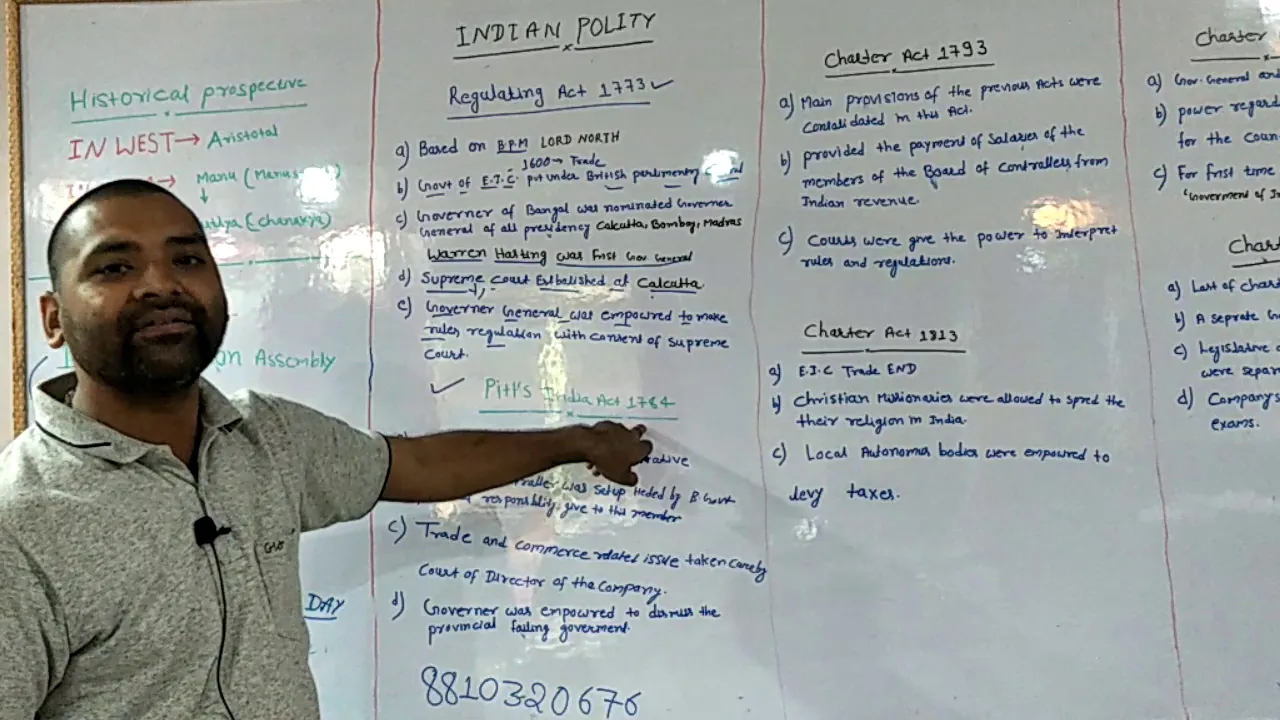 Historical prospective
IN WEST → Aristotal
Manu (Manus
(chanakya)
Assembly
DAY
INDIAN POLITY
Regulating Act 1773 ✓
a) Based on B.P.M LORD NORTH
1600 → Trade
b) Govt of E.I.C. put under British
c) Governer of Bangal was nominated Governer
General of all presidency Calcutta, Bombay, Madras
Warren Hasting was First Gov General
d) Supreme court Estbalished at Calcutta
e) Governer General was empowred to make
rules, regulation with consent of supreme
court.
✓ Pitt's India Act 1784
was setup Heded by B Govt
responsblity give to this member
c) Trade and commerce related issue taken careby
Court of Director of the Company.
d) Governer was empowred to dismiss the
provincial failing goverment.
8810320676
Charter Act 1793
a) Main provisions of the previous Acts were
in this Act.
b) provided the payment of Salaries of the
members of the Board of Controllers from
Indian revenue.
c) Courts were give the power to interpret
rules and regulations.
Charter Act 1813
a) E.I.C Trade END
b) Christian Missionaries were allowed to spred the
their religion in India.
c) Local Autonomus bodies were empoured to
levy taxes.
Charter
a) Gov. General and
b) power regard
for the Coun
c) For first time
"Goverment of I
Chart
a) Last of chart
b) A seprate
c) Legislative
were separ
d) Company's
exams.